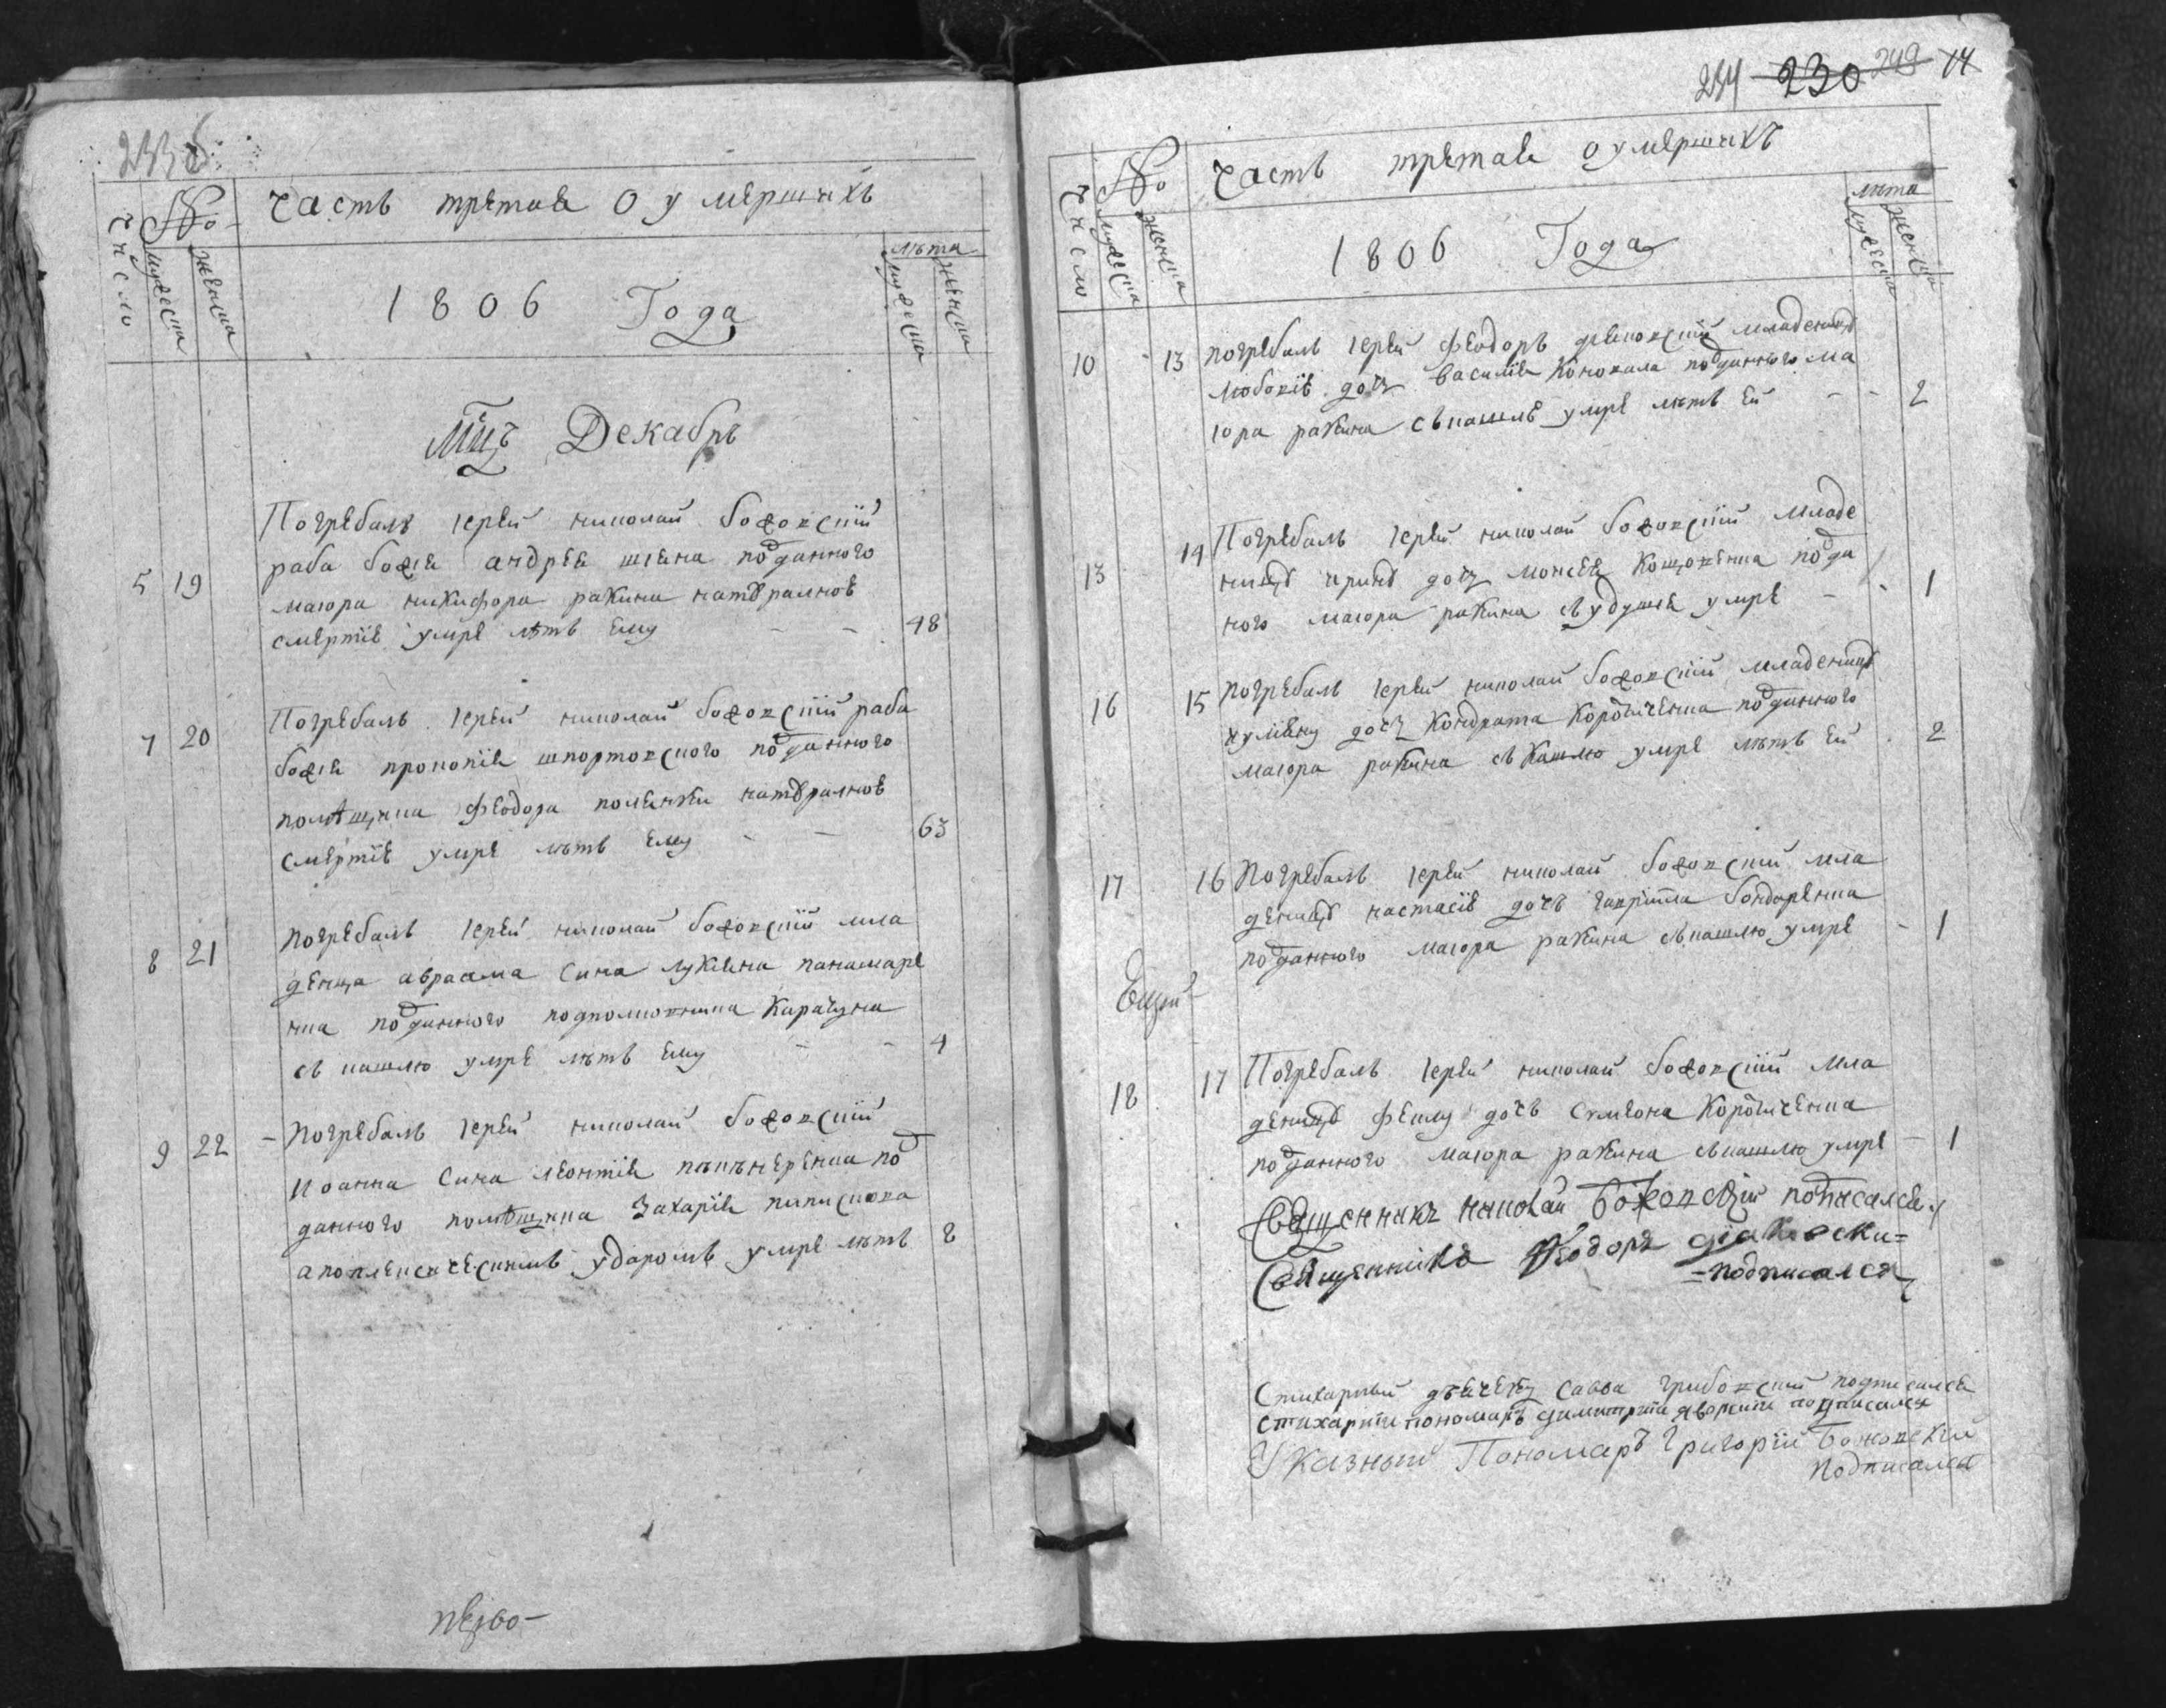 233 об
Число
№
мужеска
женска
Часть третая о умершихъ
1806 Года
лѣта
мужеска
женска
Мцъ Декабръ
5 19 Погребалъ іерей николай божовскій
раба божія андрея шіяна подданного
маіора никифора ракича натуралною
смертію умре лѣтъ ему 48
7 20 Погребалъ іерей николай божовскій раба
божія прокопія шпортовского подданного
помѣщика феодора поленки натуралною
смертію умре лѣтъ ему 63
8 21 погребалъ іерей николай божовскій мла
денца авраама сина лукіяна панамаре
нка подданного подполковника Карачуна
съ кашлю умре лѣтъ ему 4
9 22 погребалъ іерей николай божовскій
иоанна сина леонтія под
данного помѣщика Захарія
апоплексическимъ ударомъ умре лѣтъ 8
234 230 249 14
Число
№
мужеска
женска
Часть третая о умершихъ
1806 Года
лѣта
мужеска
женска
10 13 погребалъ іерей феодоръ діяковскій младеницу
любовію дочь василія Коновала подданного ма
іора ракича съ кашлѣ умре лѣтъ ей 2
13 14 Погребалъ іерей николай божовскій младе
ницу ирину дочь моисея подда
ного маіора ракича съ удушя умре 1
16 15 погребалъ іерей николай божовскій младеницу
дочь Кондрата Коробченка подданного
маіора ракича съ Кашлю умре лѣтъ ей 2
17 16 Погребалъ іерей николай божовскій мла
деницу настасію дочъ гавриила бондаренка
подданного маіора ракича съ кашлю умре 1
18 17 Погребалъ іерей николай божовскій мла
деницу феклу дочъ симеона Коробченка
подданного маіора ракича съ кашлю умре 1
Священникъ николай Божовскій подписался
Священникъ Феодоръ діяковски=
=подписался
Стихарный дьячекъ Савва грибовскій подписался
стихарній пономаръ димитрій яворскій подписался
Указный Пономаръ Григорій Божовскій
подписался